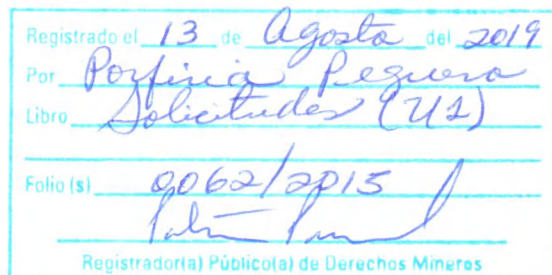 Registrado el 13 de Agosto del 2019
Por Porfiria Peguero
Libro Solicitudes (U1)
Folio (s) 0062/2015
Registrador(a) Público(a) de Derechos Mineros